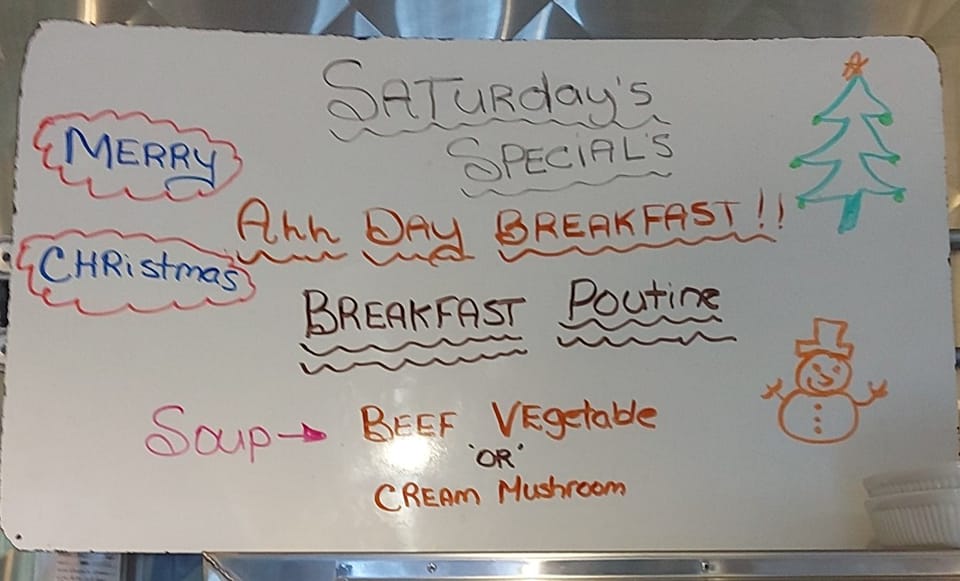 SATURday's
SPECIAL'S
MERRY
CHRistmas
Ahh DAY BREAKFAST!!
BREAKFAST Poutine
Soup → BEEF VEgetable
'OR'
CREAM Mushroom